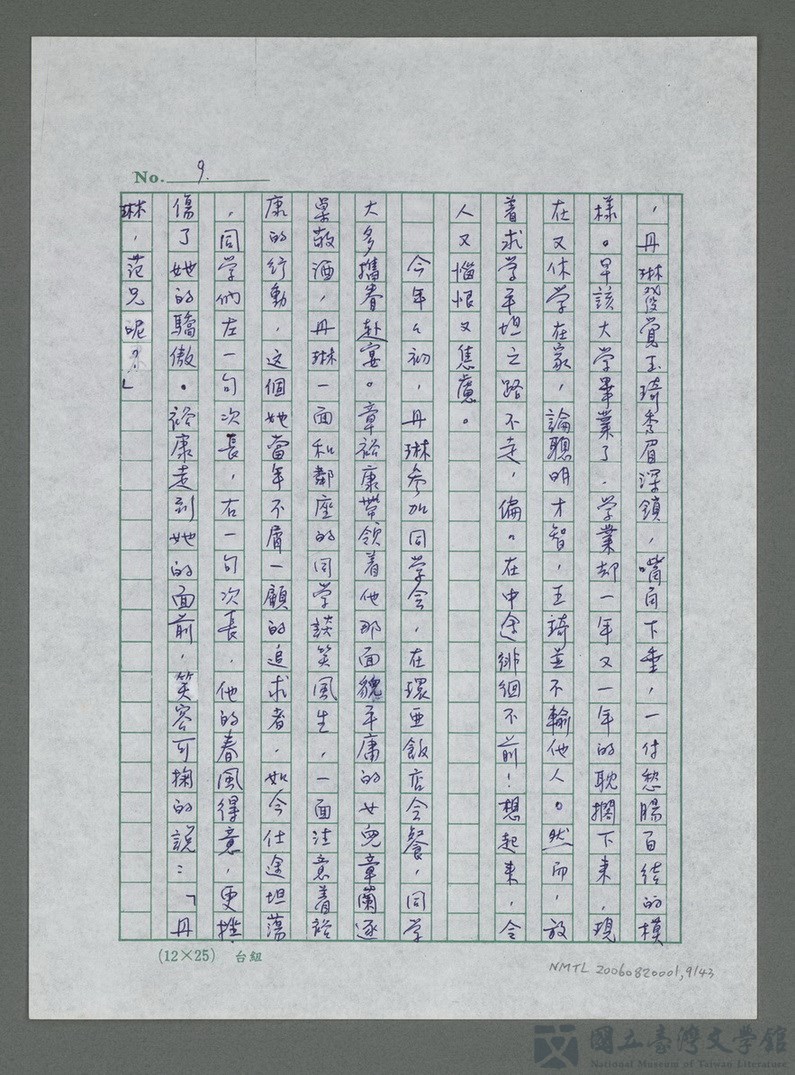 No. 9.
，丹琳發覺玉琦秀眉深鎖，嘴角下垂，一付愁腸百結的模
樣。早該大學畢業了，学業却一年又一年的耽擱下來，現
在又休学在家，論聰明才智，玉琦並不輸他人。然而，放
着求学平坦之路不走，偏。在中途徘徊不前！想起來，令
人又惱恨又焦慮。
今年々初，丹琳参加同学会，在環亞飯店会餐，同学
大多攜眷赴宴。章裕康帶領着他那面貌平庸的女兒章蘭逐
桌敬酒，丹琳一面和鄰座的同学談笑風生，一面注意着裕
康的行動，这個她當年不屑一顧的追求者，如今仕途坦蕩
，同学们左一句次長，右一句次長，他的春風得意，更挫
傷了她的驕傲。裕康走到她的面前，笑容可掬的說：「丹
琳，范兄呢？」
(12×25) 台組
NMTL 20060820001,9/43
國立臺灣文學館
National Museum of Taiwan Literature